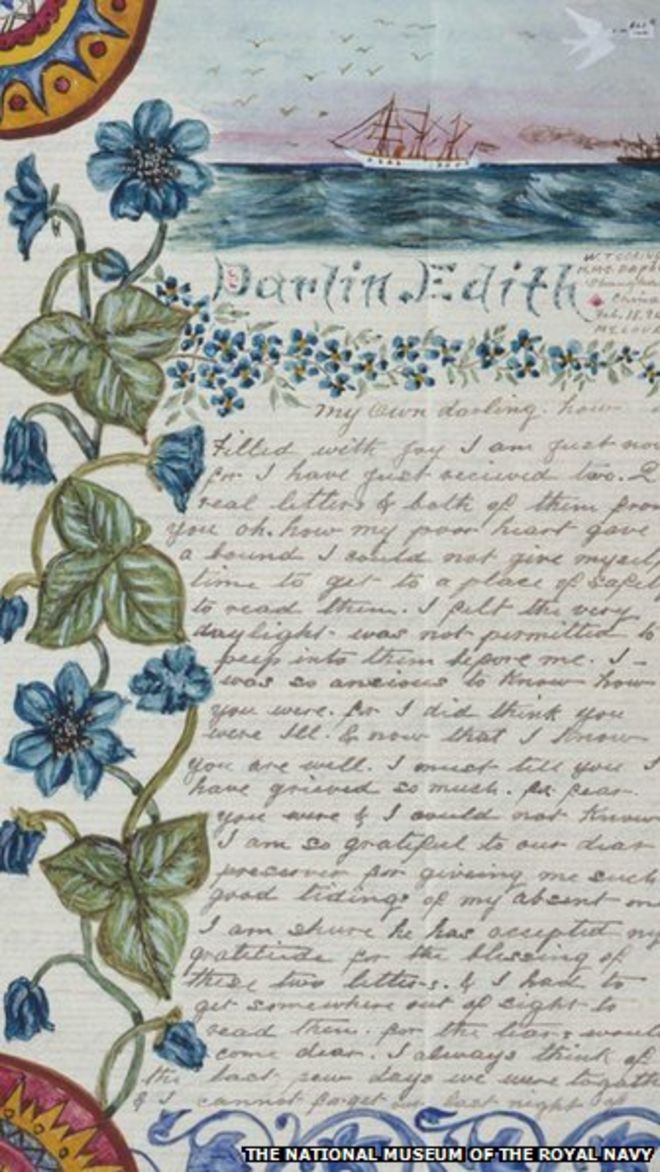 Darlin. Edith
W. T.
H.M.S.
China
Feb. 18.
my Own darling. how
Filled with joy I am just now
for I have just recieved two. 2
real letters & both of them from
you oh. how my poor heart gave
a bound I could not give myself
time to get to a place of safety
to read them. I felt the very
daylight was not permitted to
peep into them before me. I
was so anxious to know how
you were. for I did think you
were Ill. & now that I know
you are well. I must tell you I
have grieved so much. for fear.
you were & I could not know
I am so grateful to our dear
preserver for giveing me such
good tidings of my absent one
I am shure he has accepted my
gratitude for the blessing of
these two letters. & I had to
get somewhere out of sight to
read them. for the tears would
come dear. I always think of
the last few days we were togath
& I cannot forget our last night of
THE NATIONAL MUSEUM OF THE ROYAL NAVY